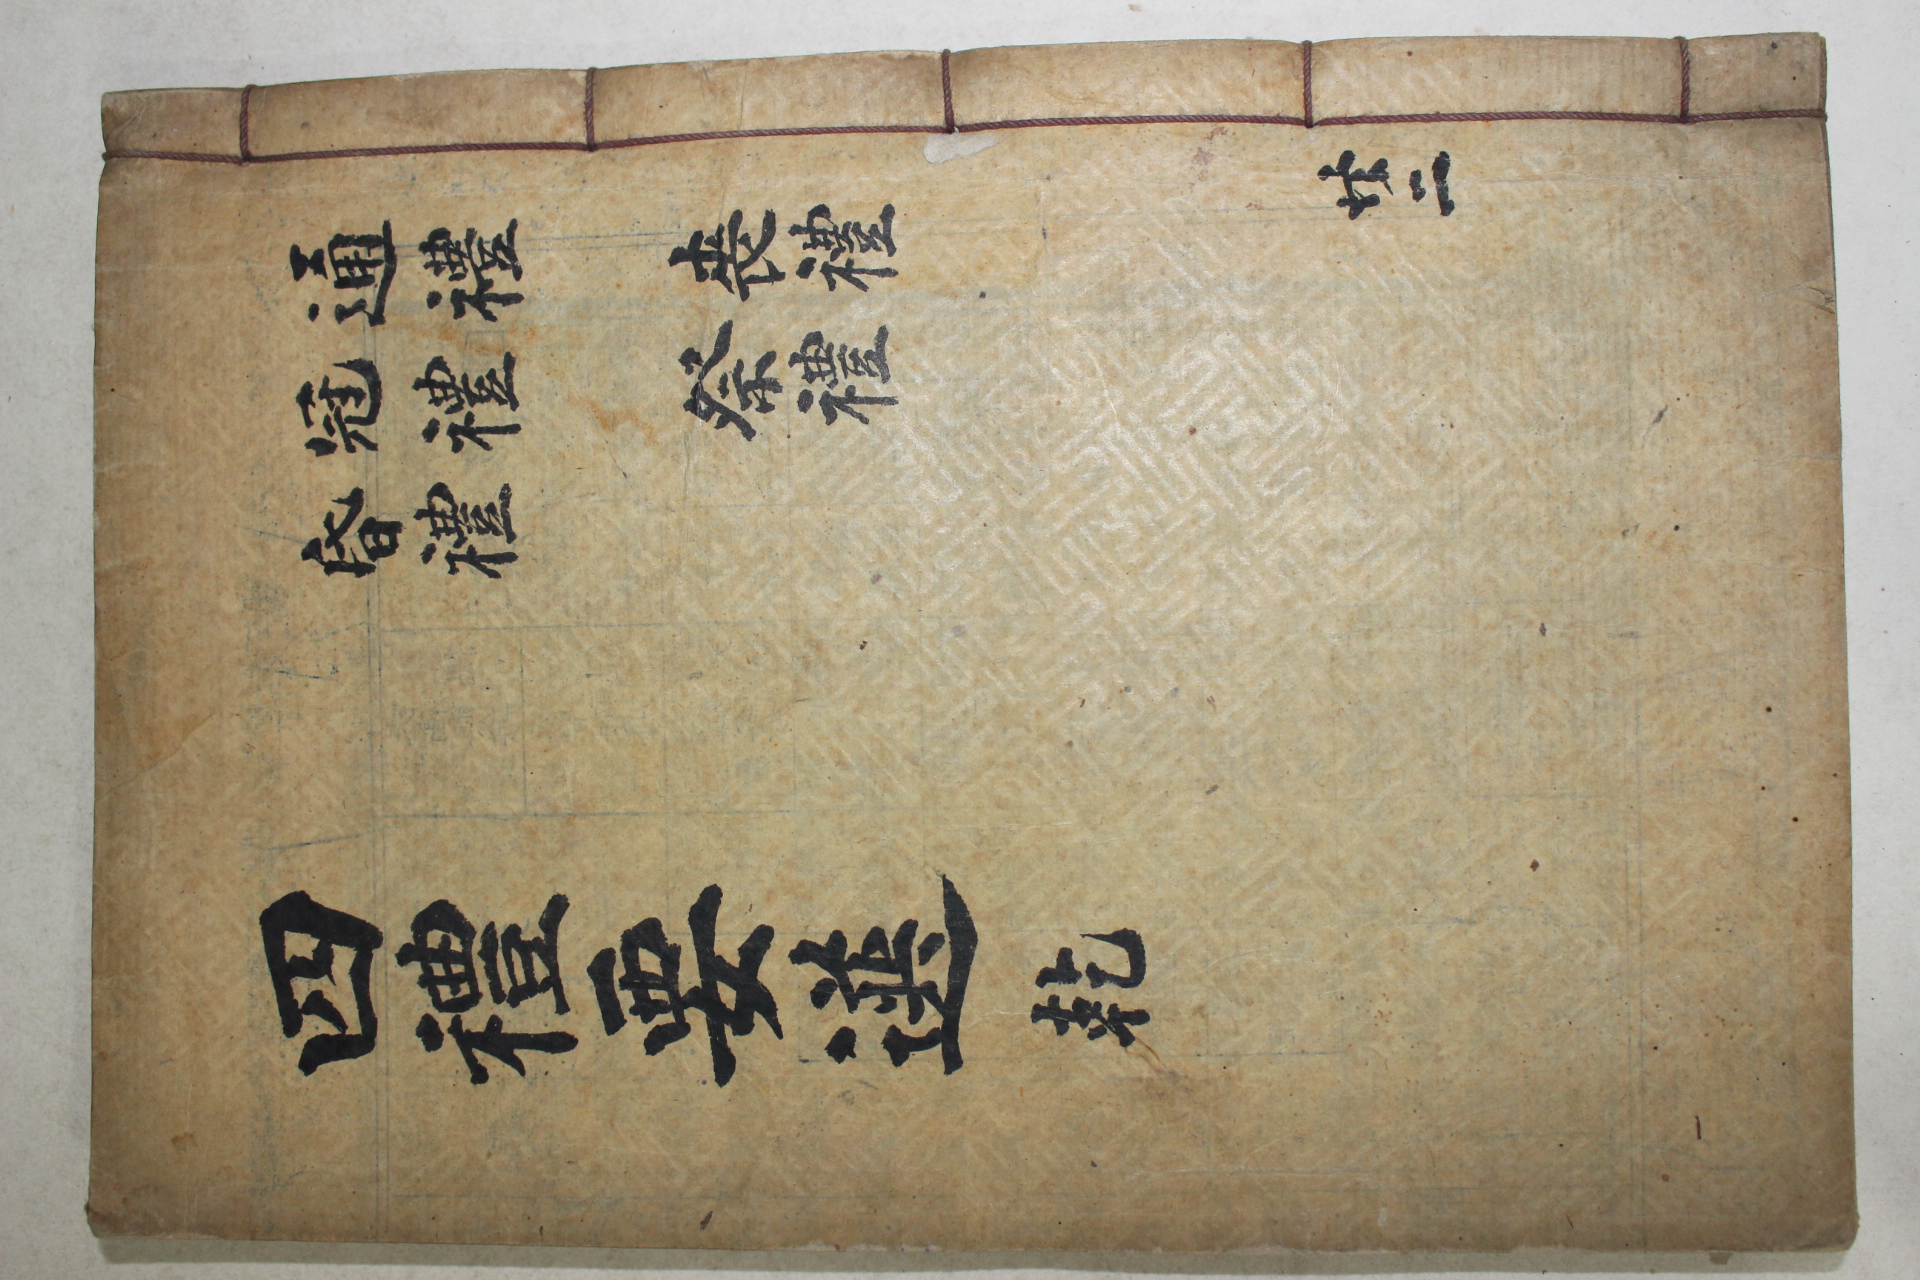 通禮
冠禮
昏禮
喪禮
祭禮
四禮要選 乾